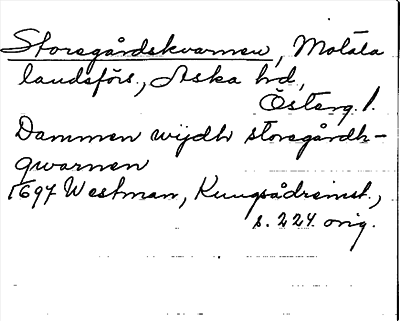 Storegårdskvarnen, Motala
landsförs., Aska hd,
Österg. l.
Dammen wijdh storegårdh-
qwarnen
1697 Westman, Kungsådreinst.,
s. 224. orig.